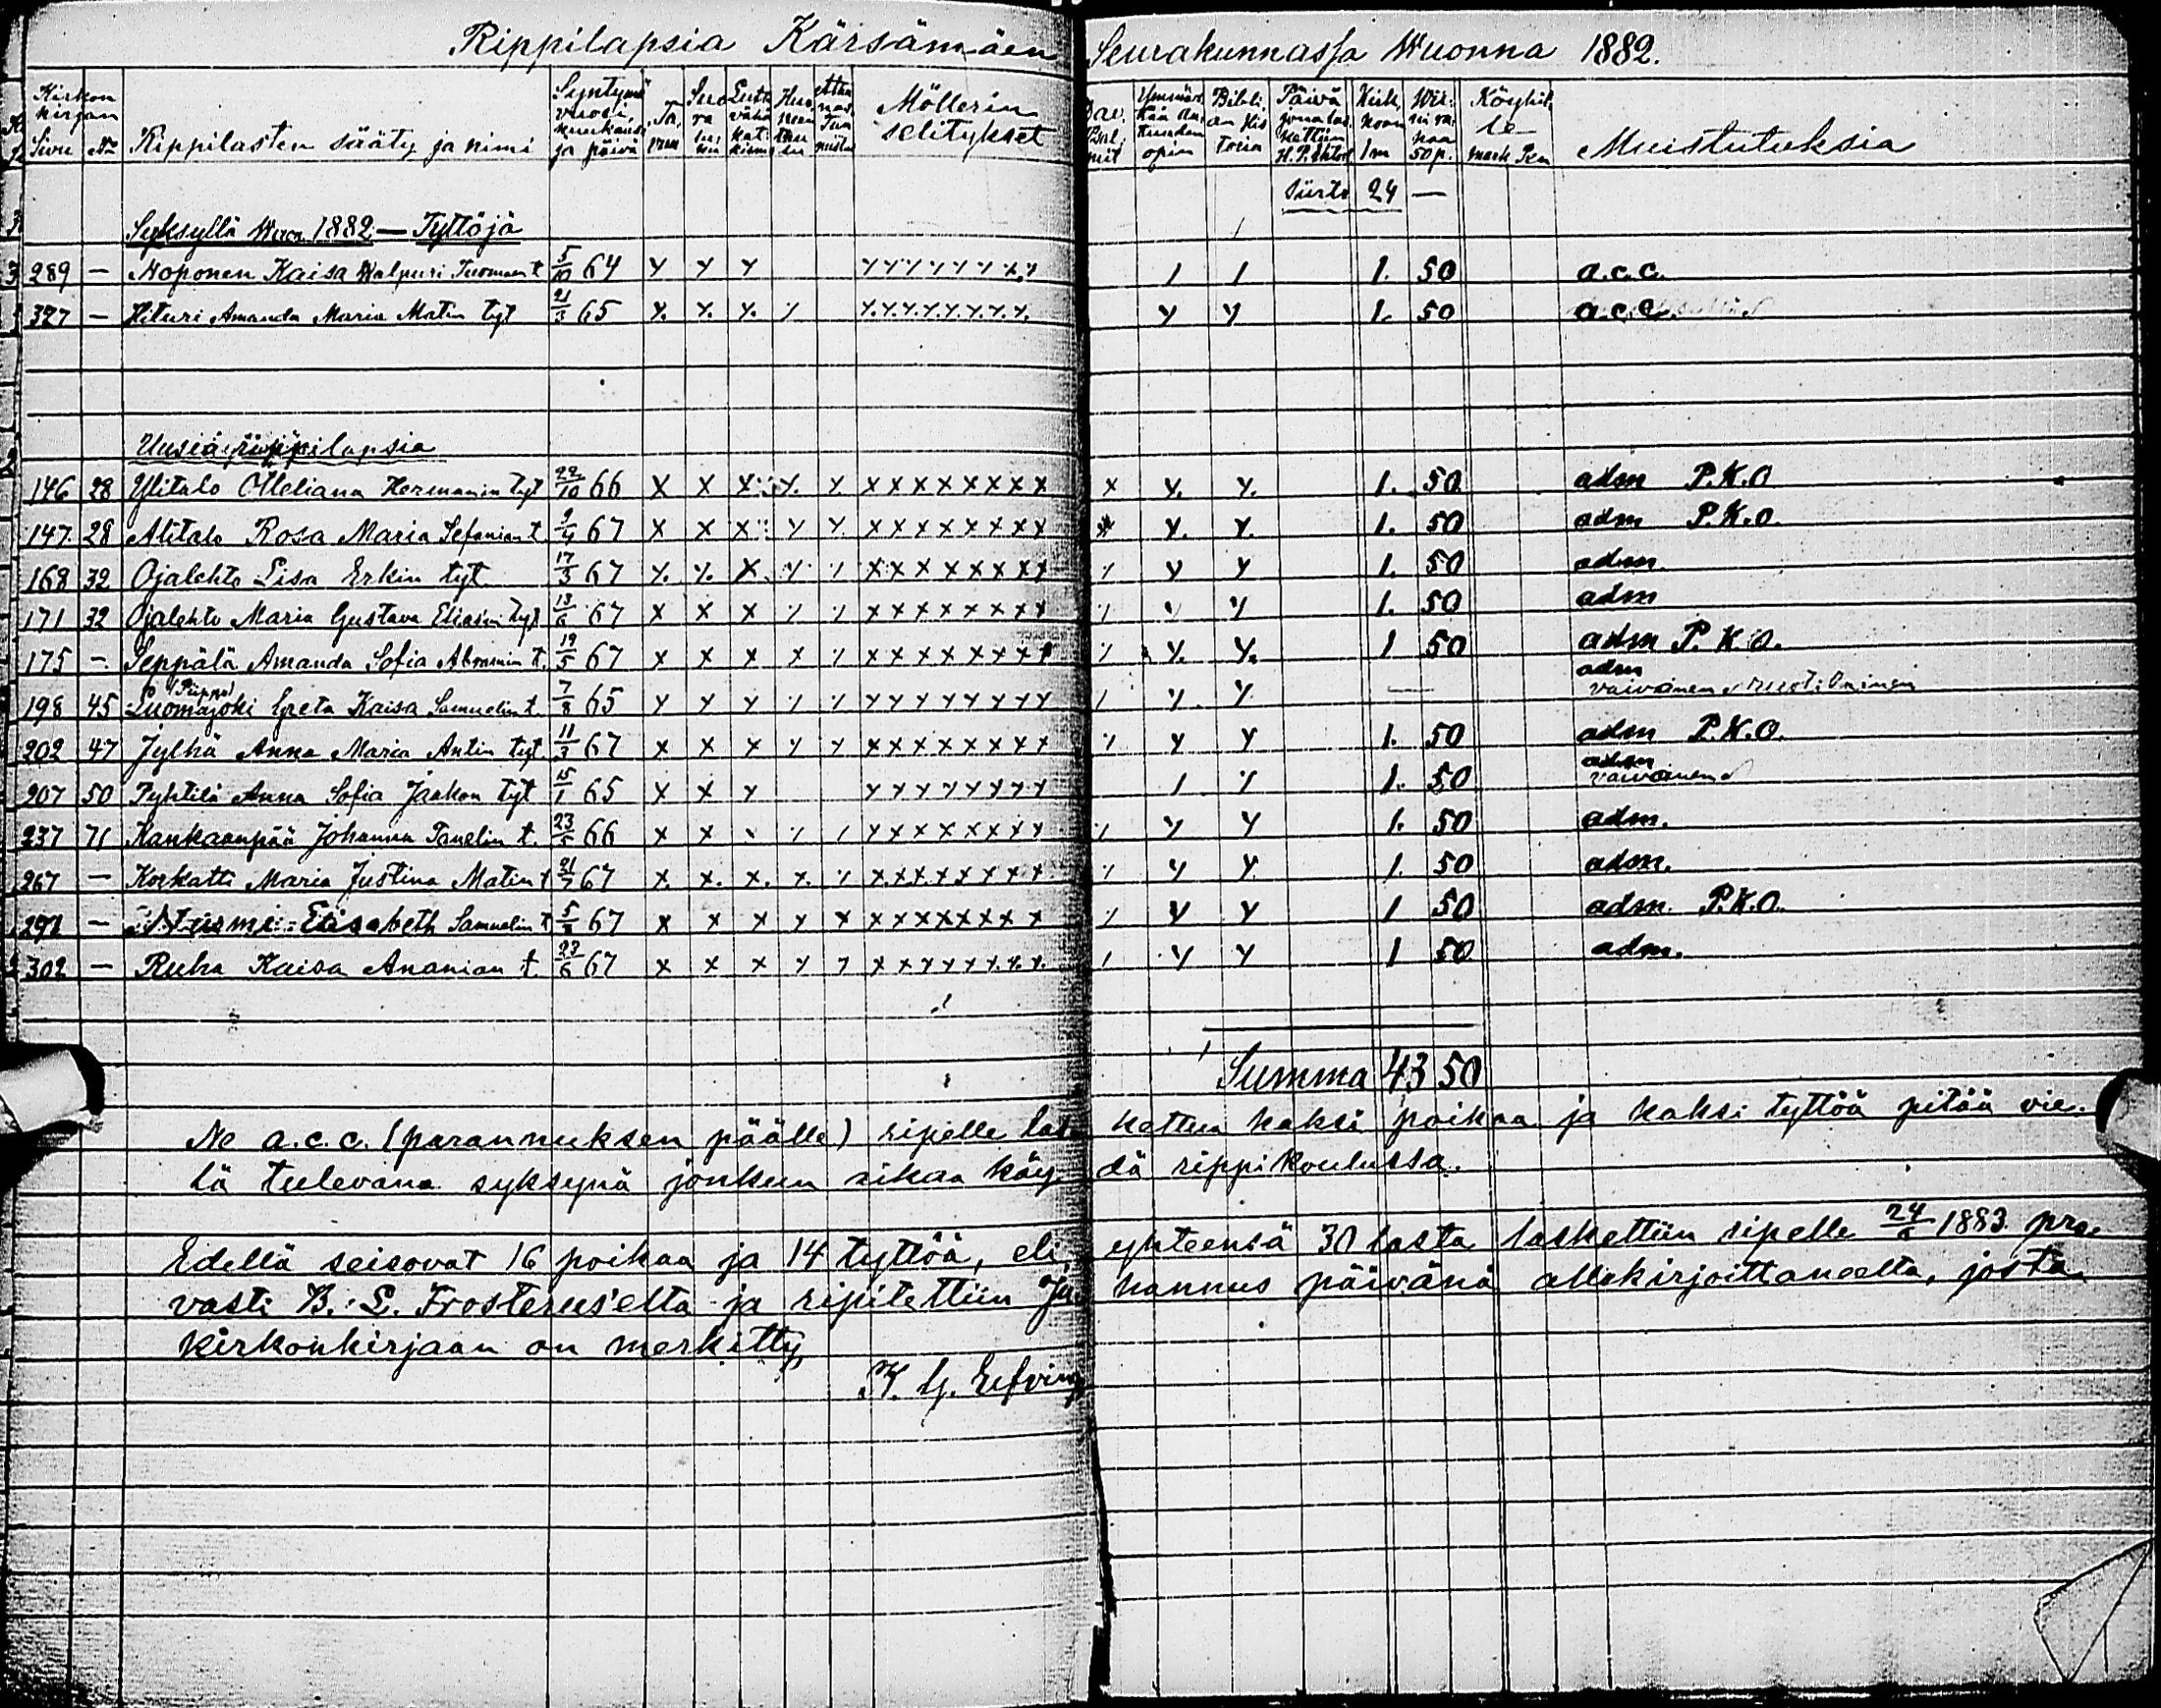 Rippilapsia Kärsämäen Seurakunnassa Wuonna 1882.
Kirkon kirjan Sivu No Rippilasten sääty ja nimi Syntymä vuosi, kuukausi ja päivä Möllerin selitykset Dav. Psal. mit Bibli. an His toria Päivä jona las kettiin H. P. Ehtool 1 m 50 p. Köyhil le mark Pen Muistutuksia
Siirto 24 —
Syksyllä 1882 — Tyttöjä
289 — Noponen Kaisa Walpuri Tuomaan t 5/10 64 y y y y y y y y y x y 1 1 1. 50 a.c.c.
327 — Hituri Amanda Maria Matin tyt 21/3 65 y. y. y. y y. y. y. y. y. y. y. y. y y 1. 50 a.c.c.
Uusia rippilapsia
146 28 Ylitalo Hermannin tyt 22/10 66 x x x y. y. x x x x x x x x x y. y. 1. 50 adm P.K.O
147. 28 Alitalo Rosa Maria Sefanian t 9/4 67 x x x y y. x x x x x x x x x y. y. 1. 50 adm P.K.O.
168 32 Ojalehto Lisa Erkin tyt 17/3 67 y. y. x y y x x x x x x x x y y y 1. 50 adm.
171 32 Ojalehto Maria Gustava Eliasin tyt 13/6 67 x x x y y x x x x x x x x y y y 1. 50 adm
175 — Seppälä Amanda Sofia Abramin t. 19/5 67 x x x x y x x x x x x x x y y. y. 1 50 adm P.K.O.
198 45 (Piippo) Luomajoki Greta Kaisa Samuelin t. 7/8 65 y y y y y y y y y y y y y 1 y y — adm vaivainen
202 47 Jylhä Anna Maria Antin tyt. 11/3 67 x x x y y x x x x x x x x y y y 1. 50 adm P.K.O.
207 50 Pyhtilä Anna Sofia Jaakon tyt 15/1 65 x x y y y y y y y y y 1 y 1. 50 adm vaivainen
237 71 Kankaanpää Johanna Panelin t. 23/5 66 x x y y y x x x x x x y y y 1. 50 adm.
267 — Korkatti Maria Justina Matin t 21/7 67 x. x. x. x. y x x x x x x x x y y y 1. 50 adm.
291 — Nurmi Elisabeth Samuelin t 67 x x x y x x x x x x x x x y y y 1 50 adm. P.K.O.
302 — Ruha Kaisa Ananian t 23/6 67 x x x y y x x y y y y. y. y. 1 y y 1 50 adm.
Summa 43 50
Ne a.c.c. (parannuksen päälle) ripille laskettua kaksi poikaa ja kaksi tyttöä pitää vie-
lä tulevana syksynä jonkun aikaa käydä rippikoulussa.
Edellä seisovat 16 poikaa ja 14 tyttöä, eli yhteensä 30 lasta laskettiin ripelle 24/6 1883 pro-
vasti B. L. Frosterus'elta ja ripitettiin Juhannus päivänä allekirjoittaneelta, josta
kirkonkirjaan on merkitty
K. G. Elfving